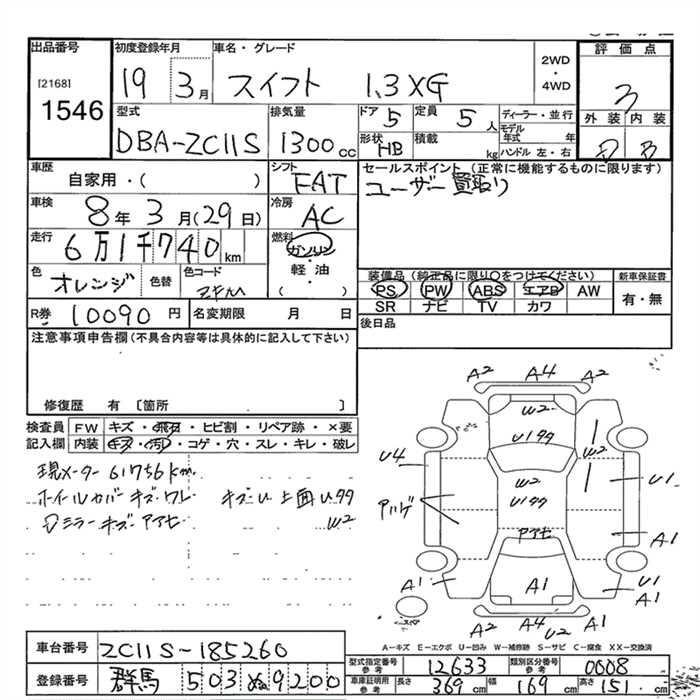 出品番号 初度登録年月 車名・グレード 評価点
[2168] 1546
19 3月 スイフト 1.3XG 2WD・4WD 3
型式 排気量 ドア 5 定員 5人 ディーラー・並行 外装 内装
DBA-ZC11S 1300cc 形状 HB 積載 kg モデル年式 年 ハンドル 左・右 B
車歴 シフト セールスポイント (正常に機能するものに限ります)
自家用・( ) FAT ユーザー買取り
車検 8年3月(29日) 冷房 AC
走行 6万1千740km 燃料 ガソリン・軽・油・( )
色 オレンジ 色替 色コード
装備品(純正品に限り○をつけてください) 新車保証書
PS PW ABS エアB AW 有・無
SR ナビ TV カワ
R券 10090円 名変期限 月 日 後日品
注意事項申告欄(不具合内容等は具体的に記入して下さい)
修復歴 有 〔箇所 〕
検査員 FW キズ・飛石・ヒビ割・リペア跡・×要
記入欄 内装 キズ・汚・コゲ・穴・スレ・キレ・破レ
現メーター 61756km
ホイルカバーキズ・ワレ キズU 上面U99
ミラーキズ・アアセ W2
A2 A4 A2
W2
U199
U4 W2 U1
U199
アハゲ アアセ A1
A1 A1 U1
A1
スペア A2 A4 U2 A2
A-キズ E-エクボ U-凹み W-補修跡 S-サビ C-腐食 XX-交換済
車台番号 ZC11S-185260
登録番号 群馬 503 ぬ 9200
型式指定番号 参考 12633 類別区分番号 参考 0008
車庫証明用 参考 長さ 369cm 幅 169cm 高さ 151cm